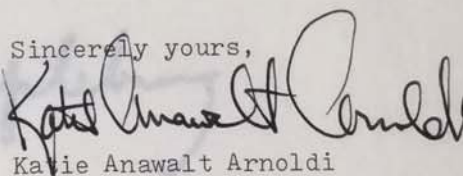 Sincerely yours,
Katie Anawalt Arnoldi
Katie Anawalt Arnoldi